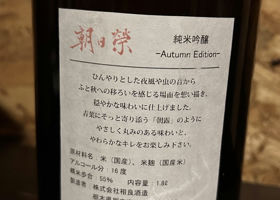 朝日榮
純米吟醸
-Autumn Edition-
ひんやりとした夜風や虫の音から
ふと秋への移ろいを感じる場面を想い描き、
穏やかな味わいに仕上げました。
青葉にそっと寄り添う「朝露」のように
やさしく丸みのある味わいと、
やわらかなキレをお楽しみ下さい。
原材料名：米（国産）、米麹（国産米）
アルコール分：16度
精米歩合：55%　内容量：1.8ℓ
製造者：株式会社相良酒造
栃木県